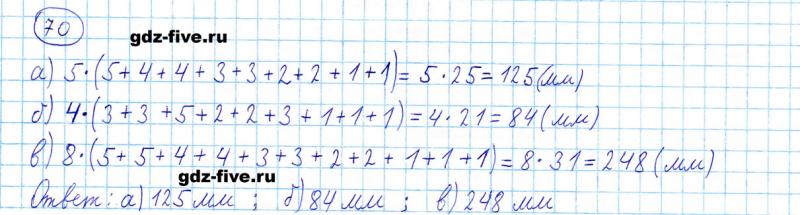 70
gdz-five.ru
а) 5·(5+4+4+3+3+2+2+1+1)=5·25=125(мм)
б) 4·(3+3+5+2+2+3+1+1+1)=4·21=84(мм)
в) 8·(5+5+4+4+3+3+2+2+1+1+1)=8·31=248(мм)
gdz-five.ru
Ответ: а) 125 мм ; б) 84 мм ; в) 248 мм